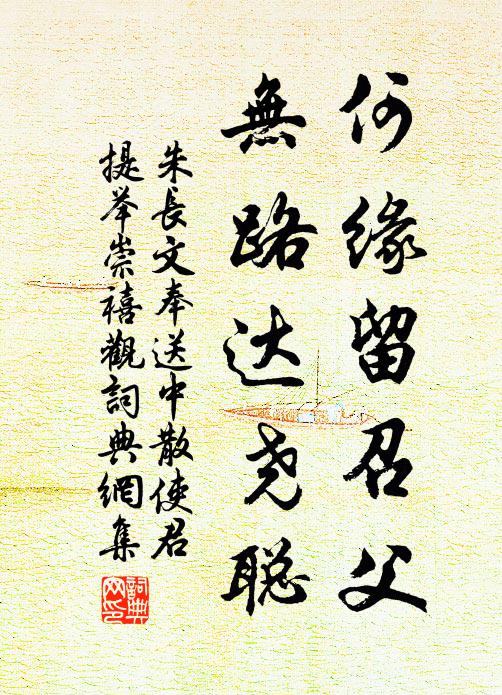 何缘留召父
無路达尧聪
朱長文奉送中散使君
提举崇禧觀詞典網集
詞典
网印